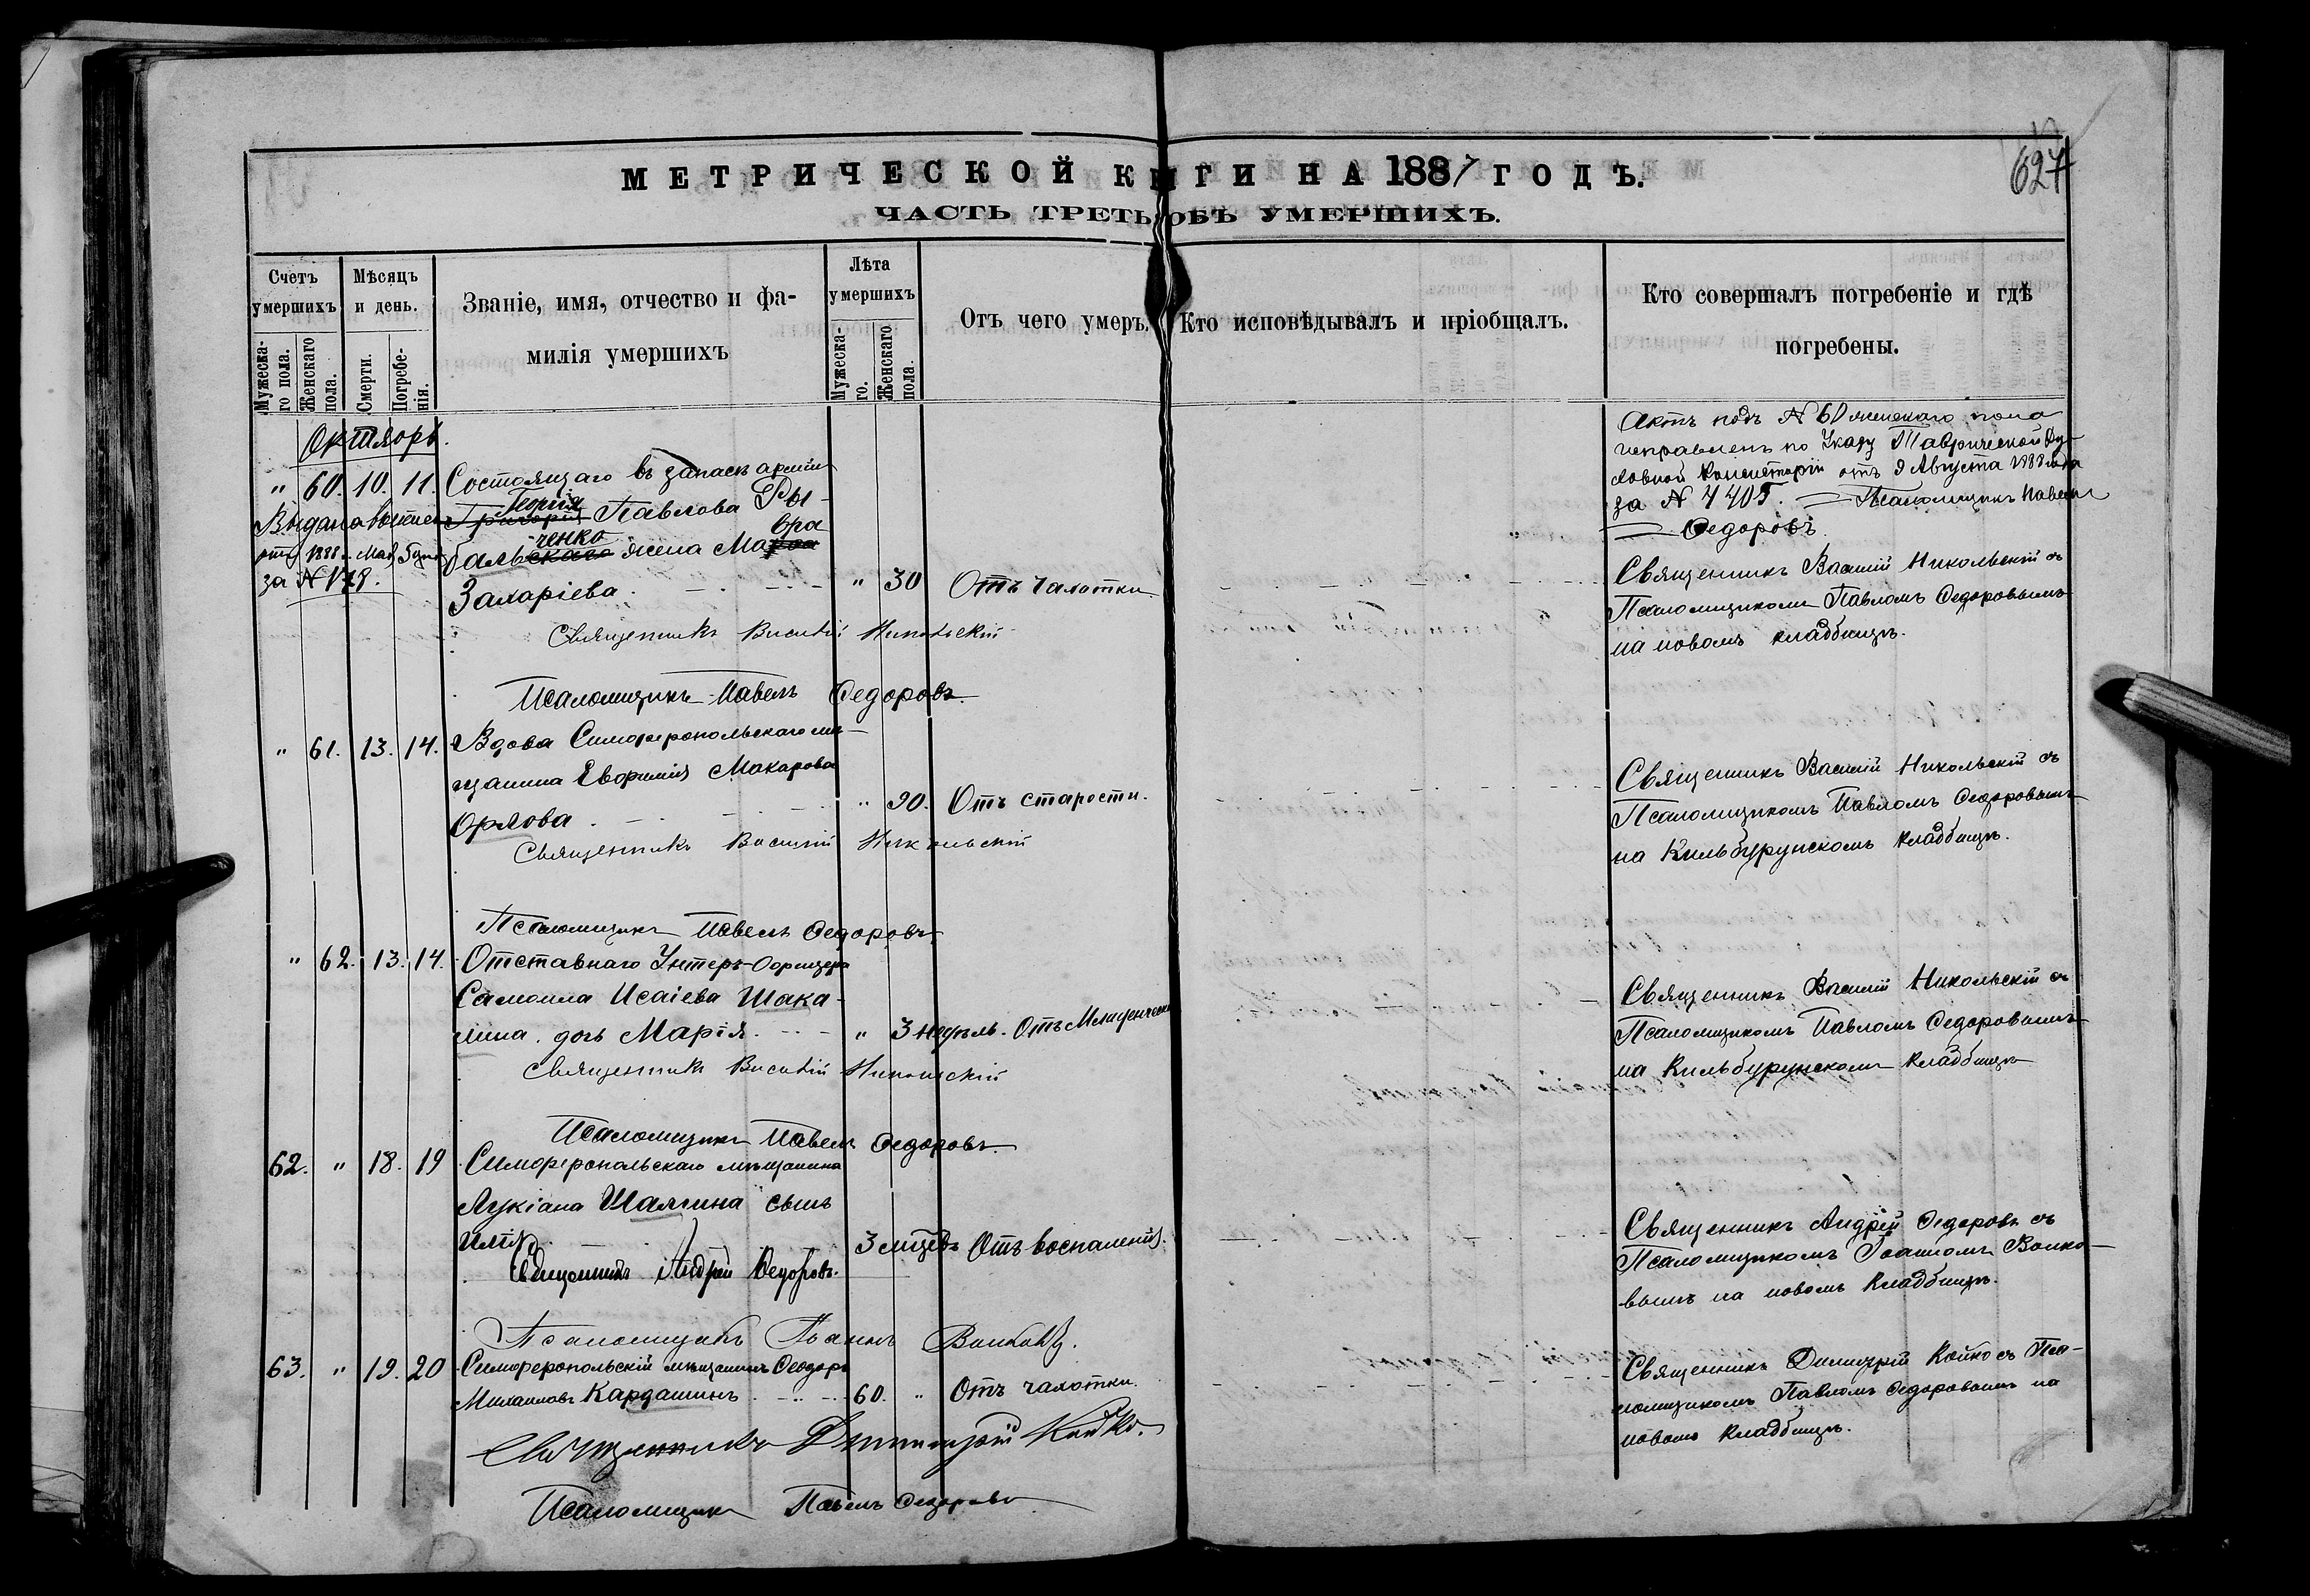 МЕТРИЧЕСКОЙ КНИГИ НА 1887 ГОДЪ.
627
ЧАСТЬ ТРЕТЬ ОБЪ УМЕРШИХЪ.
Счетъ умершихъ
Мужеска-го пола.
Женскаго пола.
Мѣсяцъ и день.
Смерти.
Погребе-нія.
Званіе, имя, отчество и фа-
милія умершихъ
Лѣта умершихъ
Мужеска-го.
Женскаго пола.
Отъ чего умеръ.
Кто исповѣдывалъ и пріобщалъ.
Кто совершалъ погребеніе и гдѣ
погребены.
Октябрь.
" 60. 10. 11. Состоящаго въ запасѣ арміи
Георгія
Григорія Павлова Ры-
ченко вра
бальскаго жена Мароа
Захаріева. " 30 Отъ чахотки
за № 178.
Священникъ Василій Никольскій
Псаломщикъ Павелъ Федоровъ.
Актъ подъ № 60 женскаго пола
исправленъ по Указу Таврической Ду-
ховной Консисторіи отъ 9 Августа 1888 года
за № 4405. Псаломщикъ Павелъ
Федоровъ.
Священникъ Василій Никольскій съ
Псаломщикомъ Павломъ Федоровымъ
на новомъ кладбищѣ.
" 61. 13. 14. Вдова Симферопольскаго мѣ-
щанина Евфимія Макарова
Орлова. " 90. Отъ старости.
Священникъ Василій Никольскій
Псаломщикъ Павелъ Федоровъ
Священникъ Василій Никольскій съ
Псаломщикомъ Павломъ Федоровымъ
на Кильбурунскомъ кладбищѣ.
" 62. 13. 14. Отставнаго Унтеръ-Офицера
Самоила Исаіева Шака-
лина. дочь Марія. " 3 недѣль. Отъ Младенческ
Священникъ Василій Никольскій
Псаломщикъ Павелъ Федоровъ.
Священникъ Василій Никольскій съ
Псаломщикомъ Павломъ Федоровымъ
на Кильбурунскомъ кладбищѣ
62. " 18. 19 Симферопольскаго мѣщанина
Лукіана Шалгина сынъ
Илія 3 мѣсцевъ Отъ воспаленія.
Священникъ Андрей Федоровъ.
Псаломщикъ Іоаннъ Волковъ.
Священникъ Андрей Федоровъ съ
Псаломщикомъ Іоанномъ Волко-
вымъ на новомъ кладбищѣ.
63. " 19. 20 Симферопольскій мѣщанинъ Феодоръ
Михаиловъ Кардашинъ 60. " Отъ чахотки.
Священникъ Димитрій Койко.
Псаломщикъ Павелъ Федоровъ
Священникъ Димитрій Койко съ Пса-
ломщикомъ Павломъ Федоровымъ на
новомъ кладбищѣ.